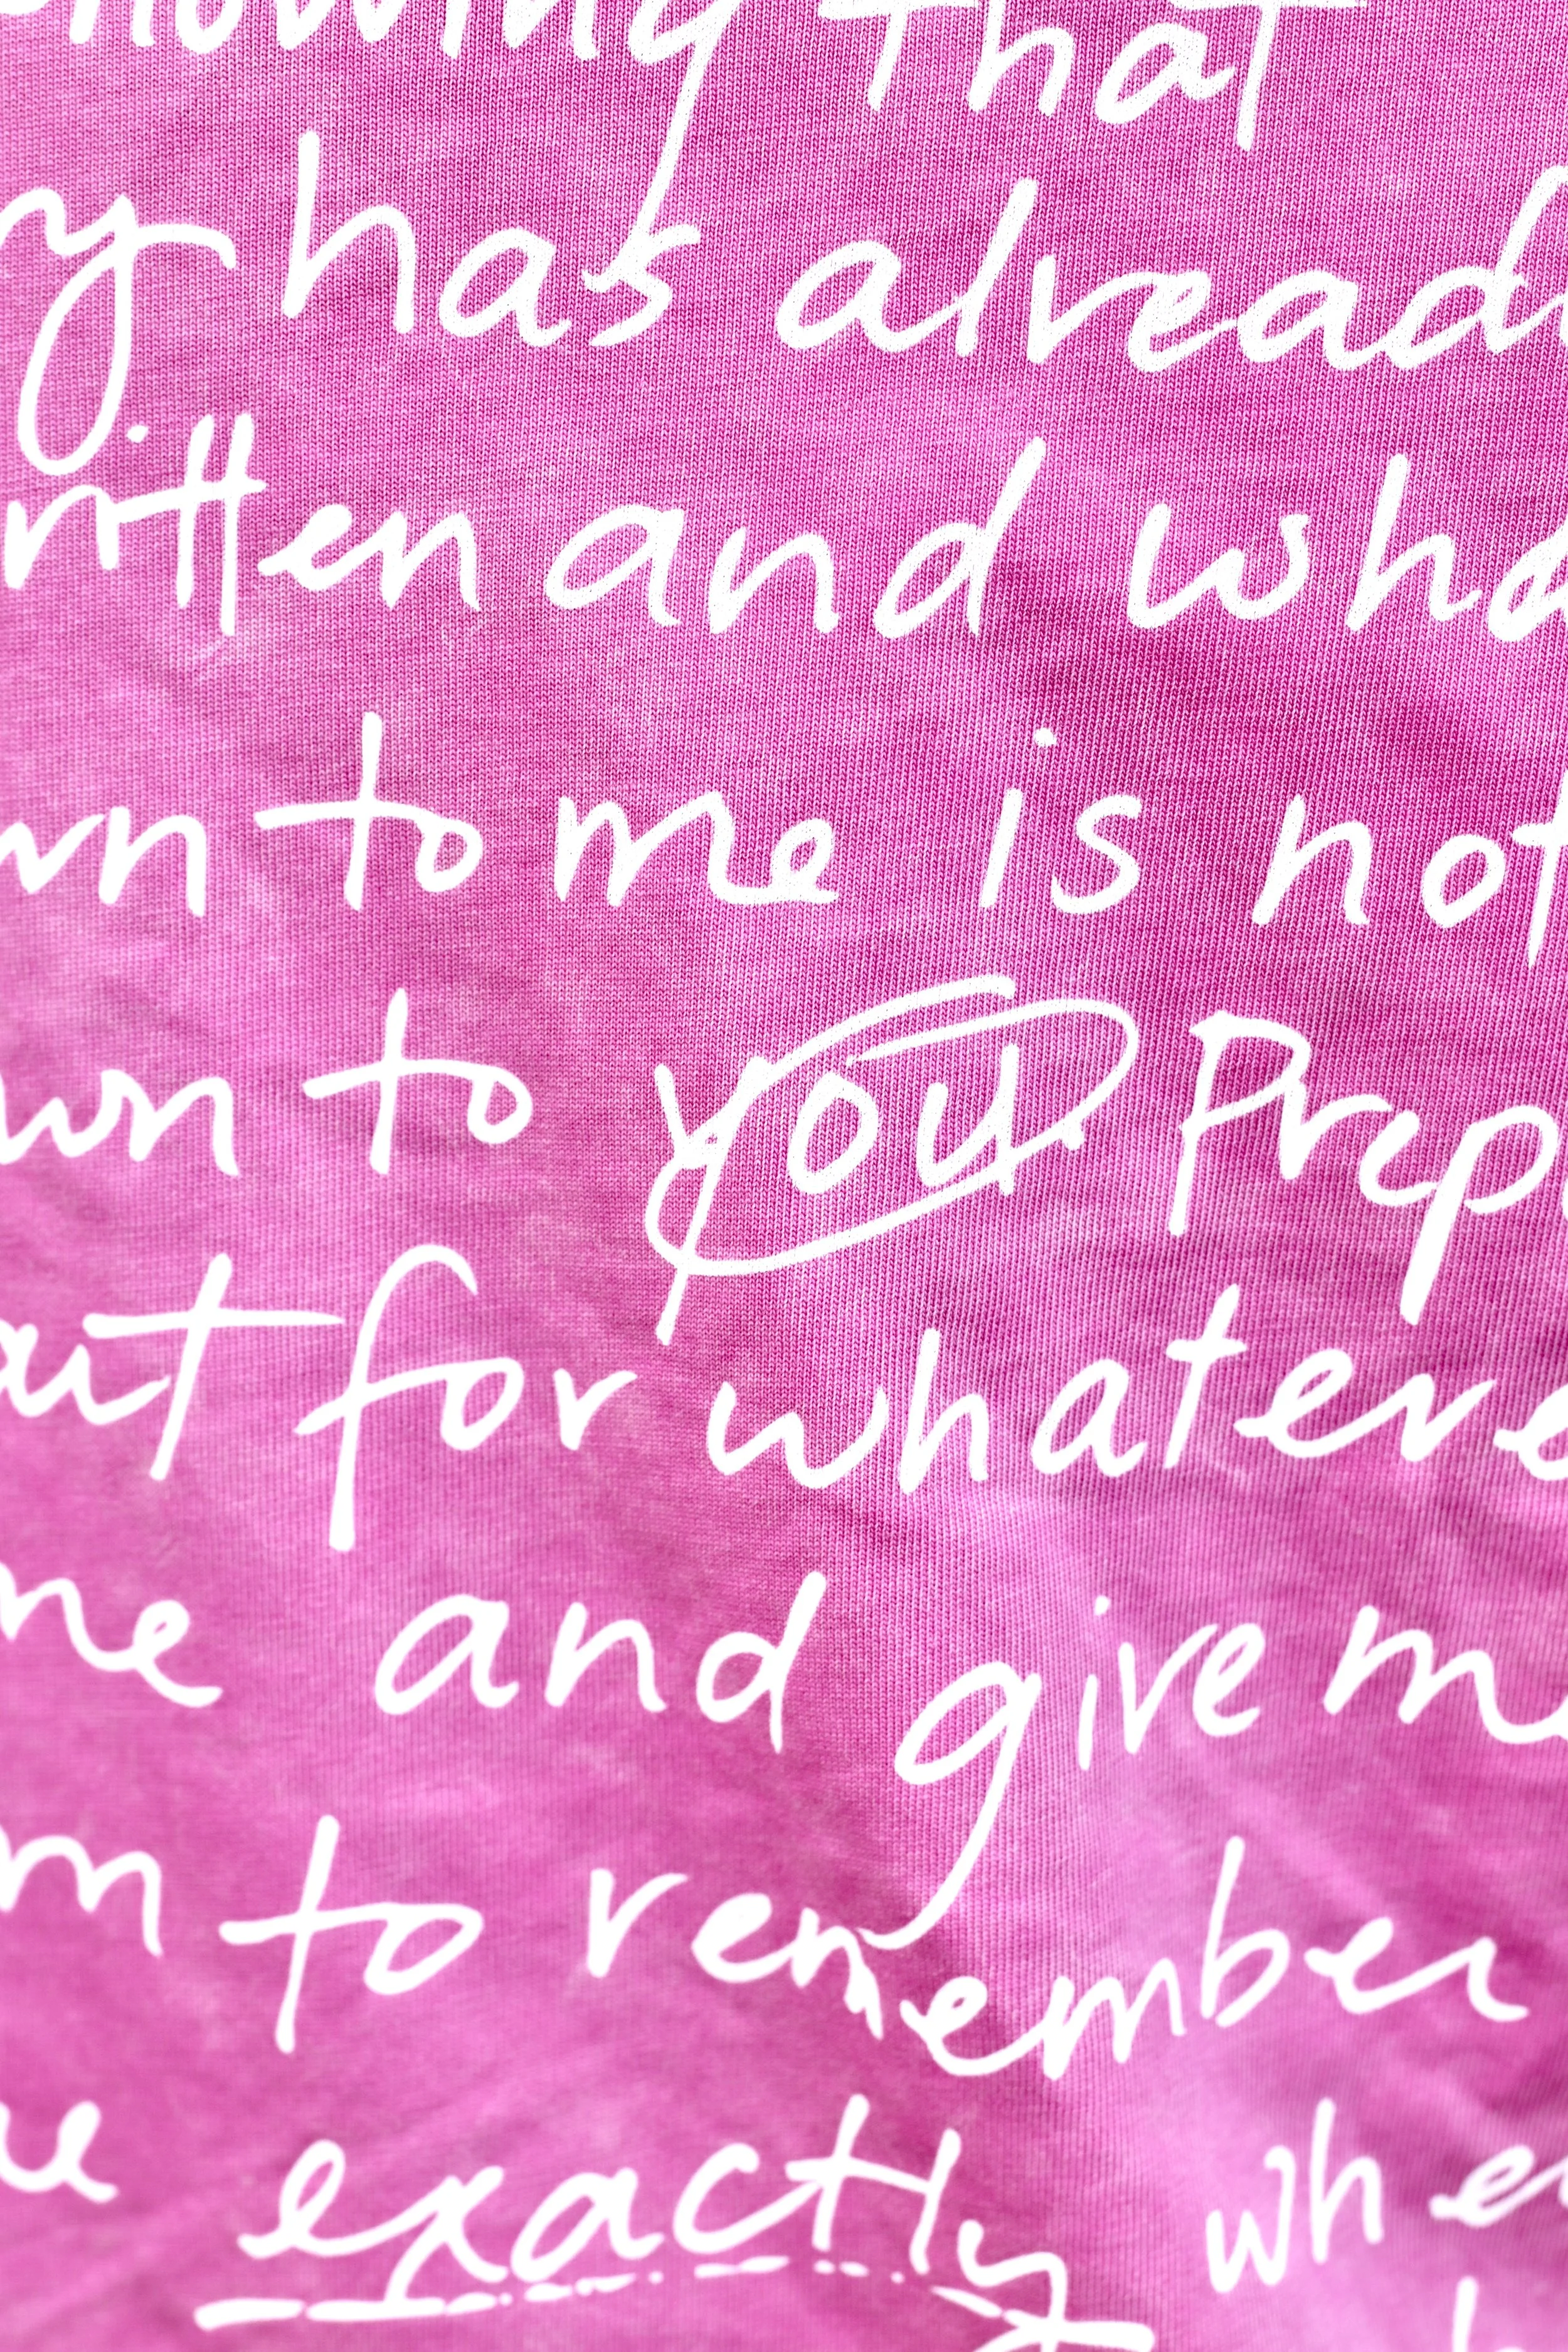 nowing that
y has already
ritten and wha
wn to me is not
wn to you. Prep
art for whateve
me and give me
m to remember
e exactly whe